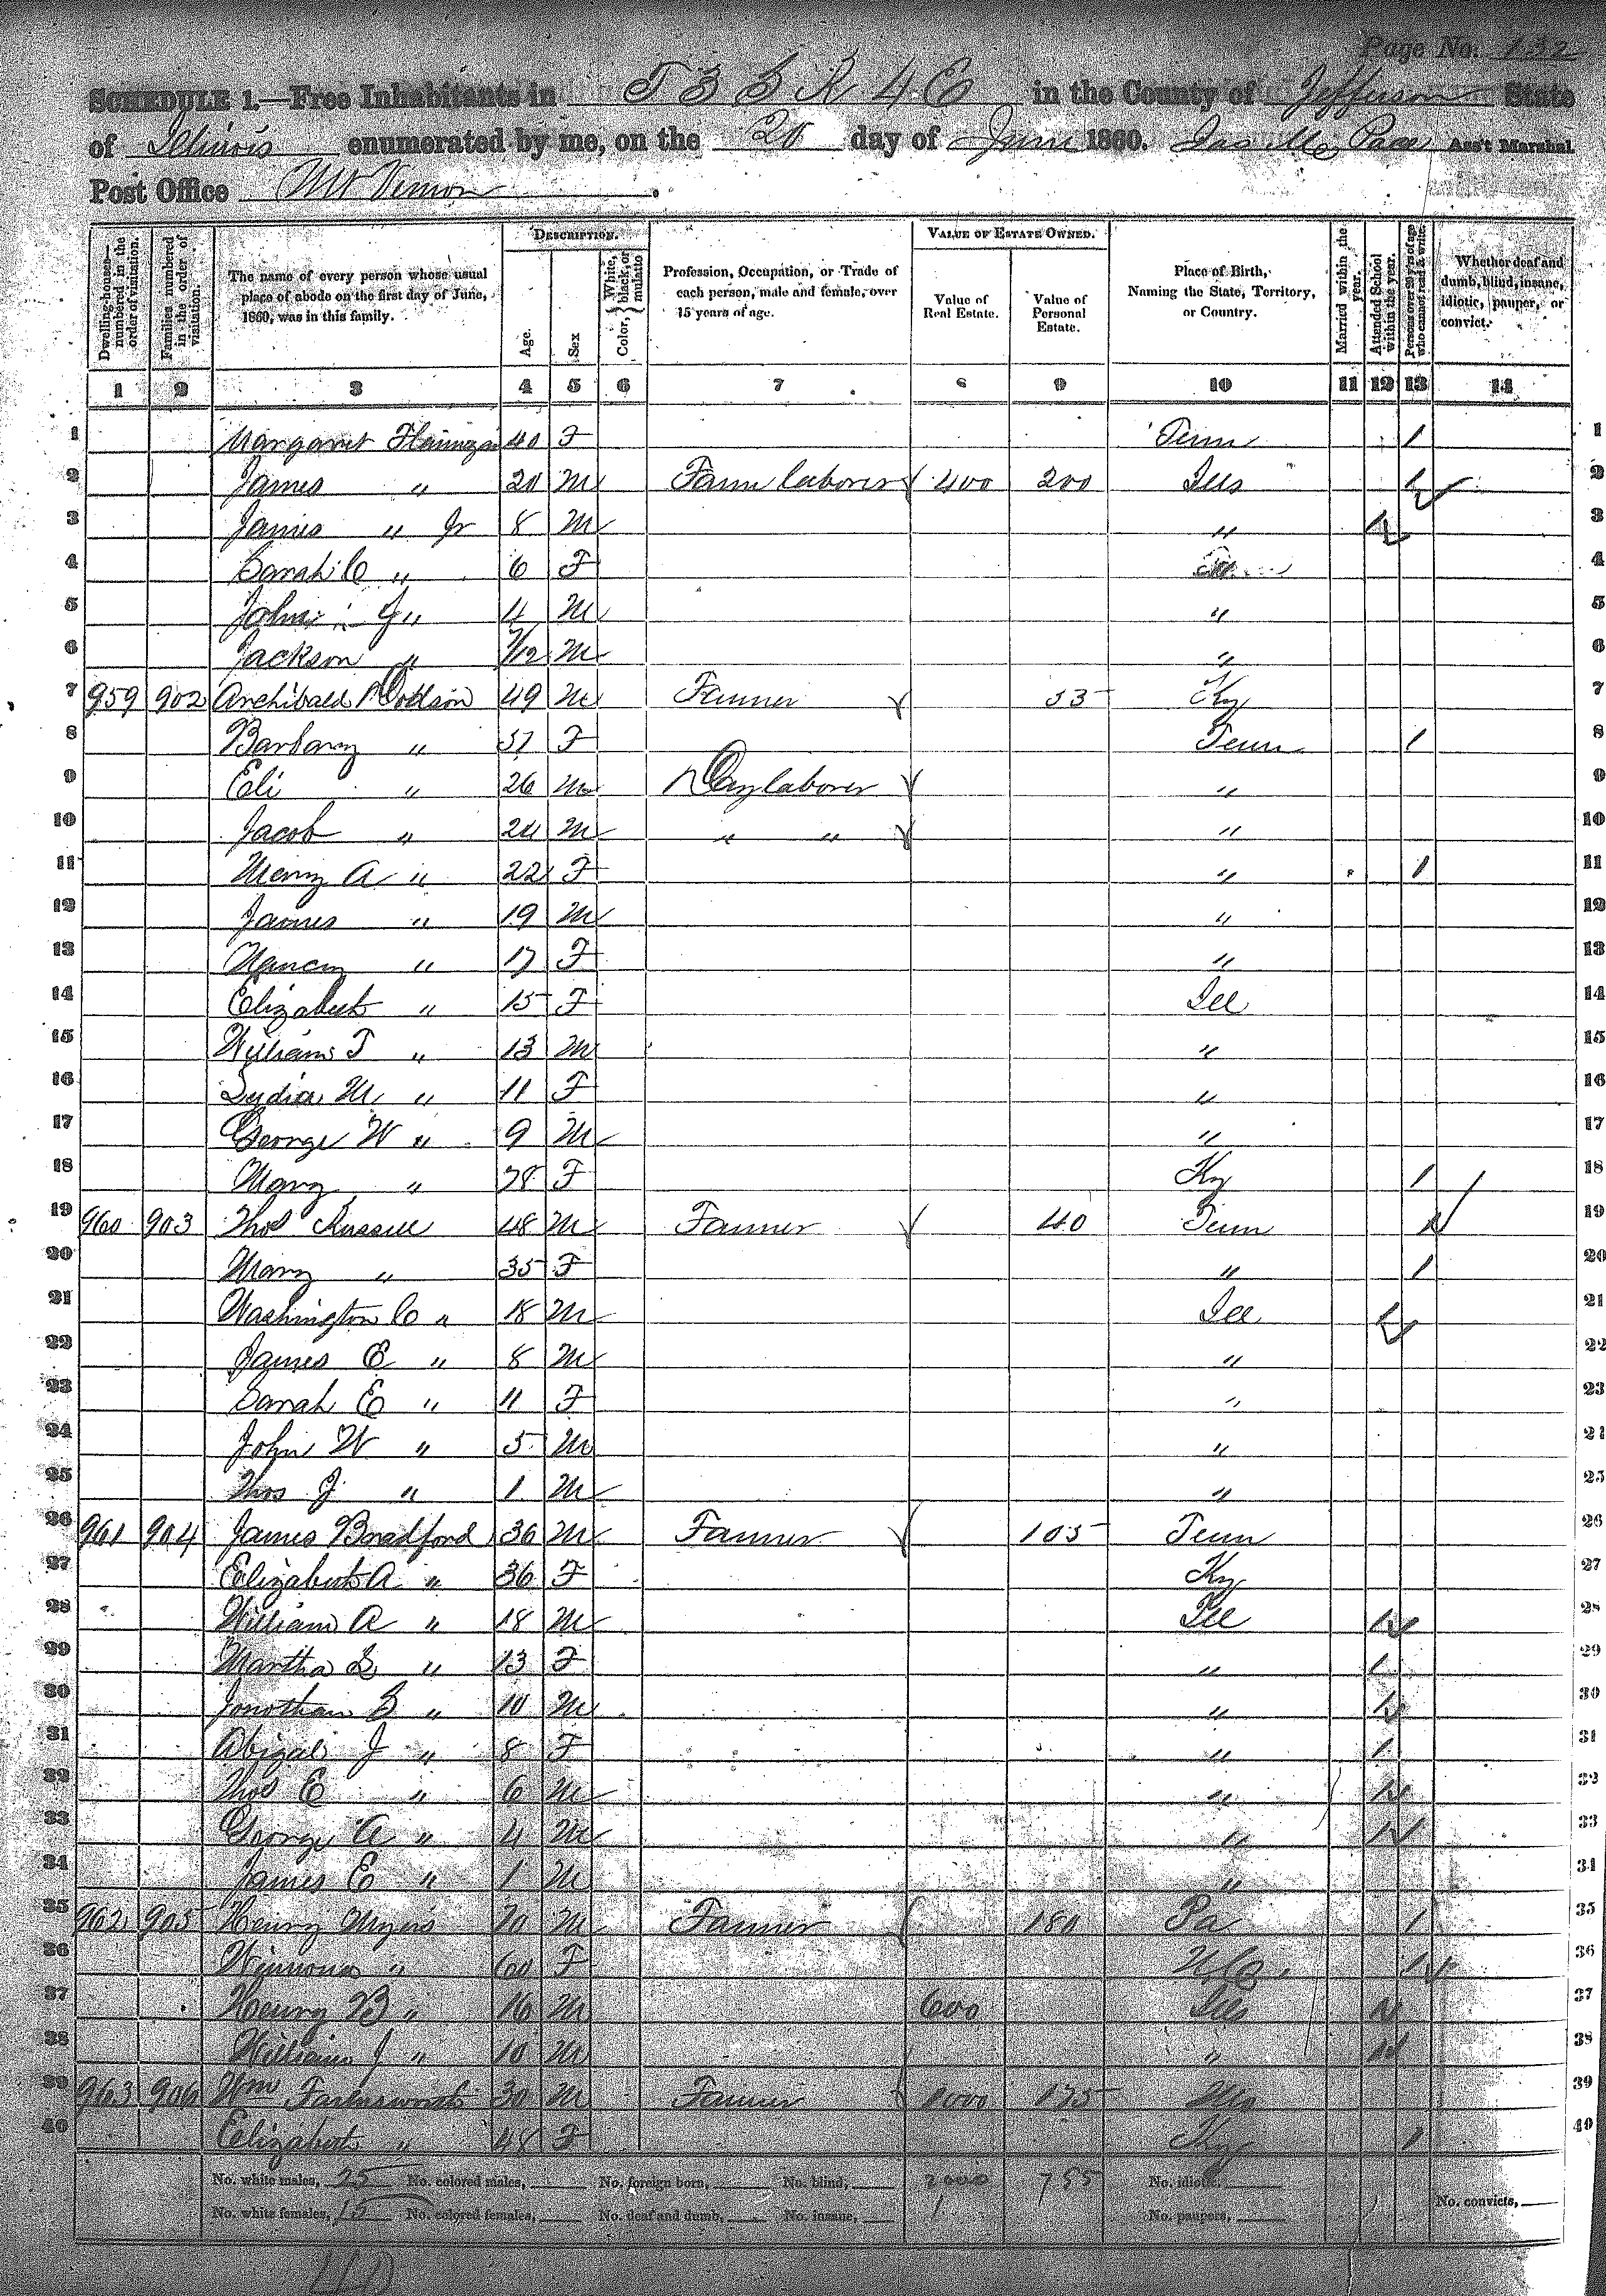 Page No. 132
SCHEDULE 1.—Free Inhabitants in T 3 S R 4 E in the County of Jefferson State
of Illinois enumerated by me, on the 20 day of June 1860. Pace Ass't Marshal
Post Office Mt Vernon
DESCRIPTION. VALUE OF ESTATE OWNED.
Dwelling-houses—numbered in the order of visitation. Families numbered in the order of visitation. The name of every person whose usual place of abode on the first day of June, 1860, was in this family. Age. Sex Color, {White, black, or mulatto Profession, Occupation, or Trade of each person, male and female, over 15 years of age. Value of Real Estate. Value of Personal Estate. Place of Birth, Naming the State, Territory, or Country. Married within the year. Attended School within the year. Persons over 20 y'rs of age who cannot read & write. Whether deaf and dumb, blind, insane, idiotic, pauper, or convict.
1 2 3 4 5 6 7 8 9 10 11 12 13 14
1 Margaret 40 F Tenn 1 1
2 James " 20 M Farm laborer 400 200 Ills 1 2
3 James " Jr 8 M " 1 3
4 Sarah C " 6 F 4
5 John " 4 M " 5
6 Jackson " 7/12 M " 6
7 959 902 Archibald Dodson 49 M Farmer 35 Ky 7
8 Barbary " 37 F Tenn 1 8
9 Eli " 26 M Day laborer " 9
10 Jacob " 24 M " " " 10
11 Mary A " 22 F " 1 11
12 James " 19 M " 12
13 Nancy " 17 F " 13
14 Elizabeth " 15 F Ill 14
15 William T " 13 M " 15
16 Lydia M " 11 F " 16
17 George W " 9 M " 17
18 Mary " 78 F Ky 1 18
19 960 903 Thos Russell 48 M Farmer 40 Tenn 1 19
20 Mary " 35 F " 1 20
21 Washington C " 18 M Ill 1 21
22 James E " 8 M " 22
23 Sarah E " 11 F " 23
24 John W " 5 M " 24
25 Thos J " 1 M " 25
26 961 904 James Bradford 36 M Farmer 105 Tenn 26
27 Elizabeth A " 36 F Ky 27
28 William A " 18 M Ill 1 28
29 Martha L " 13 F " 1 29
30 Jonathan B " 10 M " 1 30
31 Abigail J " 8 F " 1 31
32 Thos E " 6 M " 1 32
33 George A " 4 M " 1 33
34 James E " 1 M " 34
35 962 905 Henry Myers 70 M Farmer 180 Pa 1 35
36 " 60 F N.C. 1 36
37 Henry B " 16 M 600 Ills 1 37
38 William J " 10 M " 1 38
39 963 906 Wm Farnsworth 30 M Farmer 1000 195 39
40 Elizabeth " 48 F Ky 1 40
No. white males, 25 No. colored males, No. foreign born, No. blind, 2000 755 No. idiotic,
No. white females, 15 No. colored females, No. deaf and dumb, No. insane, No. paupers, No. convicts,
40